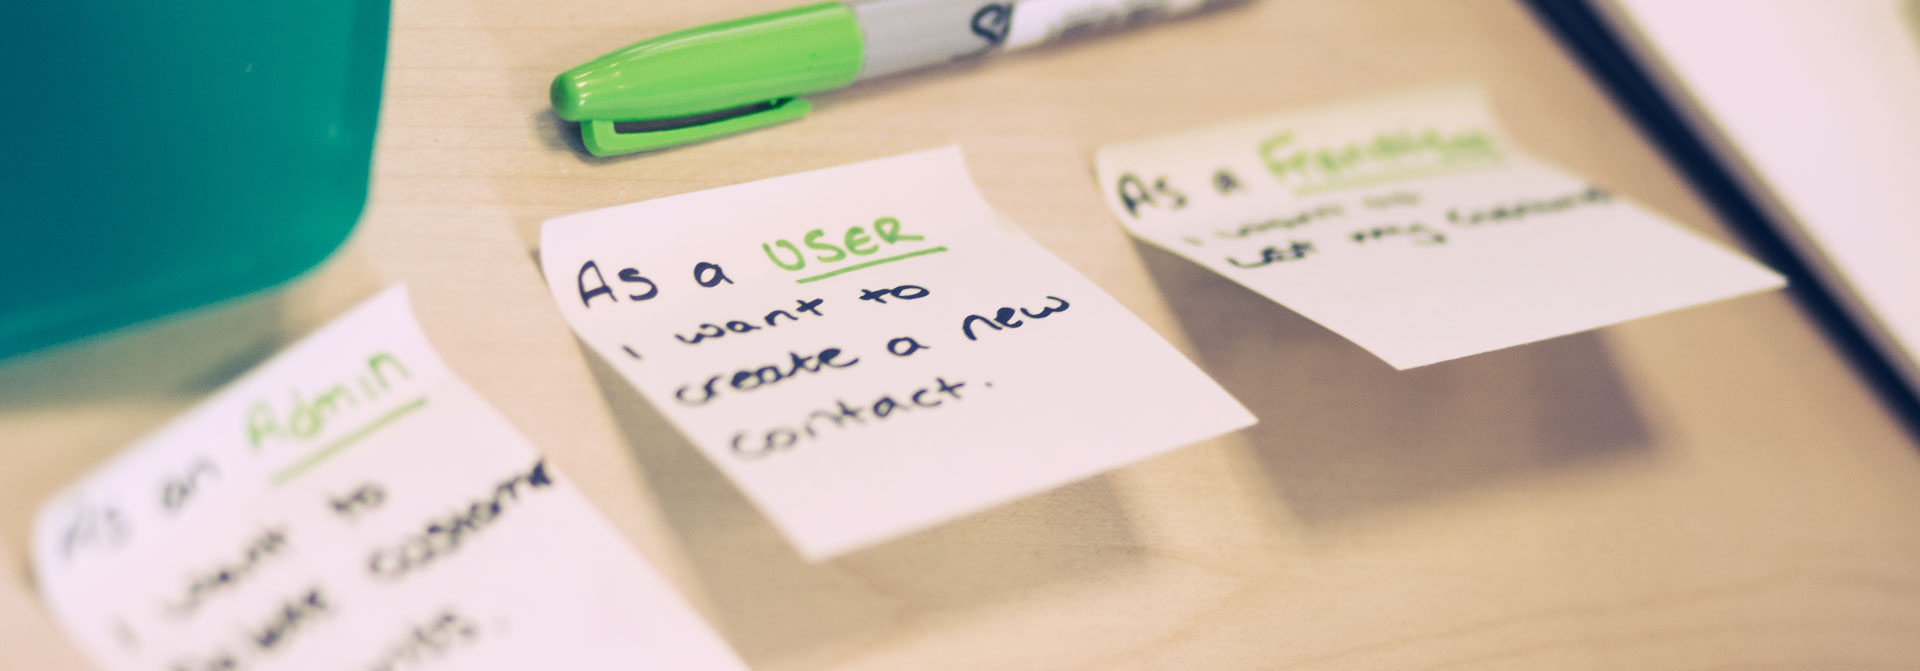 As an Admin
I want to
delete customer
As a USER
I want to
create a new
contact.
As a Franchisee
I want to
my